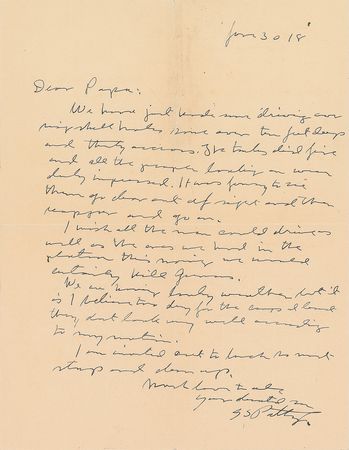 June 30 18
Dear Papa:
We have just made some driving over
big shell holes some over ten feet deep
and thirty across. The tanks did fine
and all the people looking on were
duly impressed. It was funny to see
them go clear out of sight and then
reappear and go on.
I wish all the men could drive as
well as the ones we had in the
platoon this morning we would
certainly kill Germans.
We are having lovely weather but it
is I believe too dry for the crops I hear
they dont look very well according
to my notion.
I am invited out to lunch so must
stop and clean up.
Much love to all
Your devoted son
G S Patton Jr.